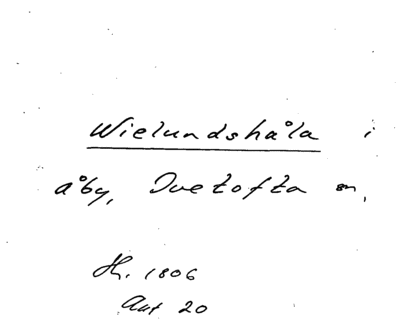 Wielundshåla i
åby, Ivetofta sn,
Hh. 1806
Ant 20